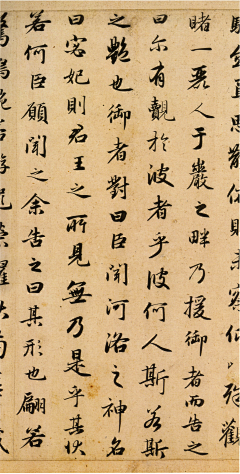 思散俯則未察仰以殊觀
睹一麗人于巖之畔乃援御者而告之
曰尔有覿於彼者乎彼何人斯若斯
之艷也御者對曰臣聞河洛之神名
曰宓妃則君王之所見無乃是乎其狀
若何臣願聞之余告之曰其形也翩若
驚鴻婉若游龍榮曜秋菊